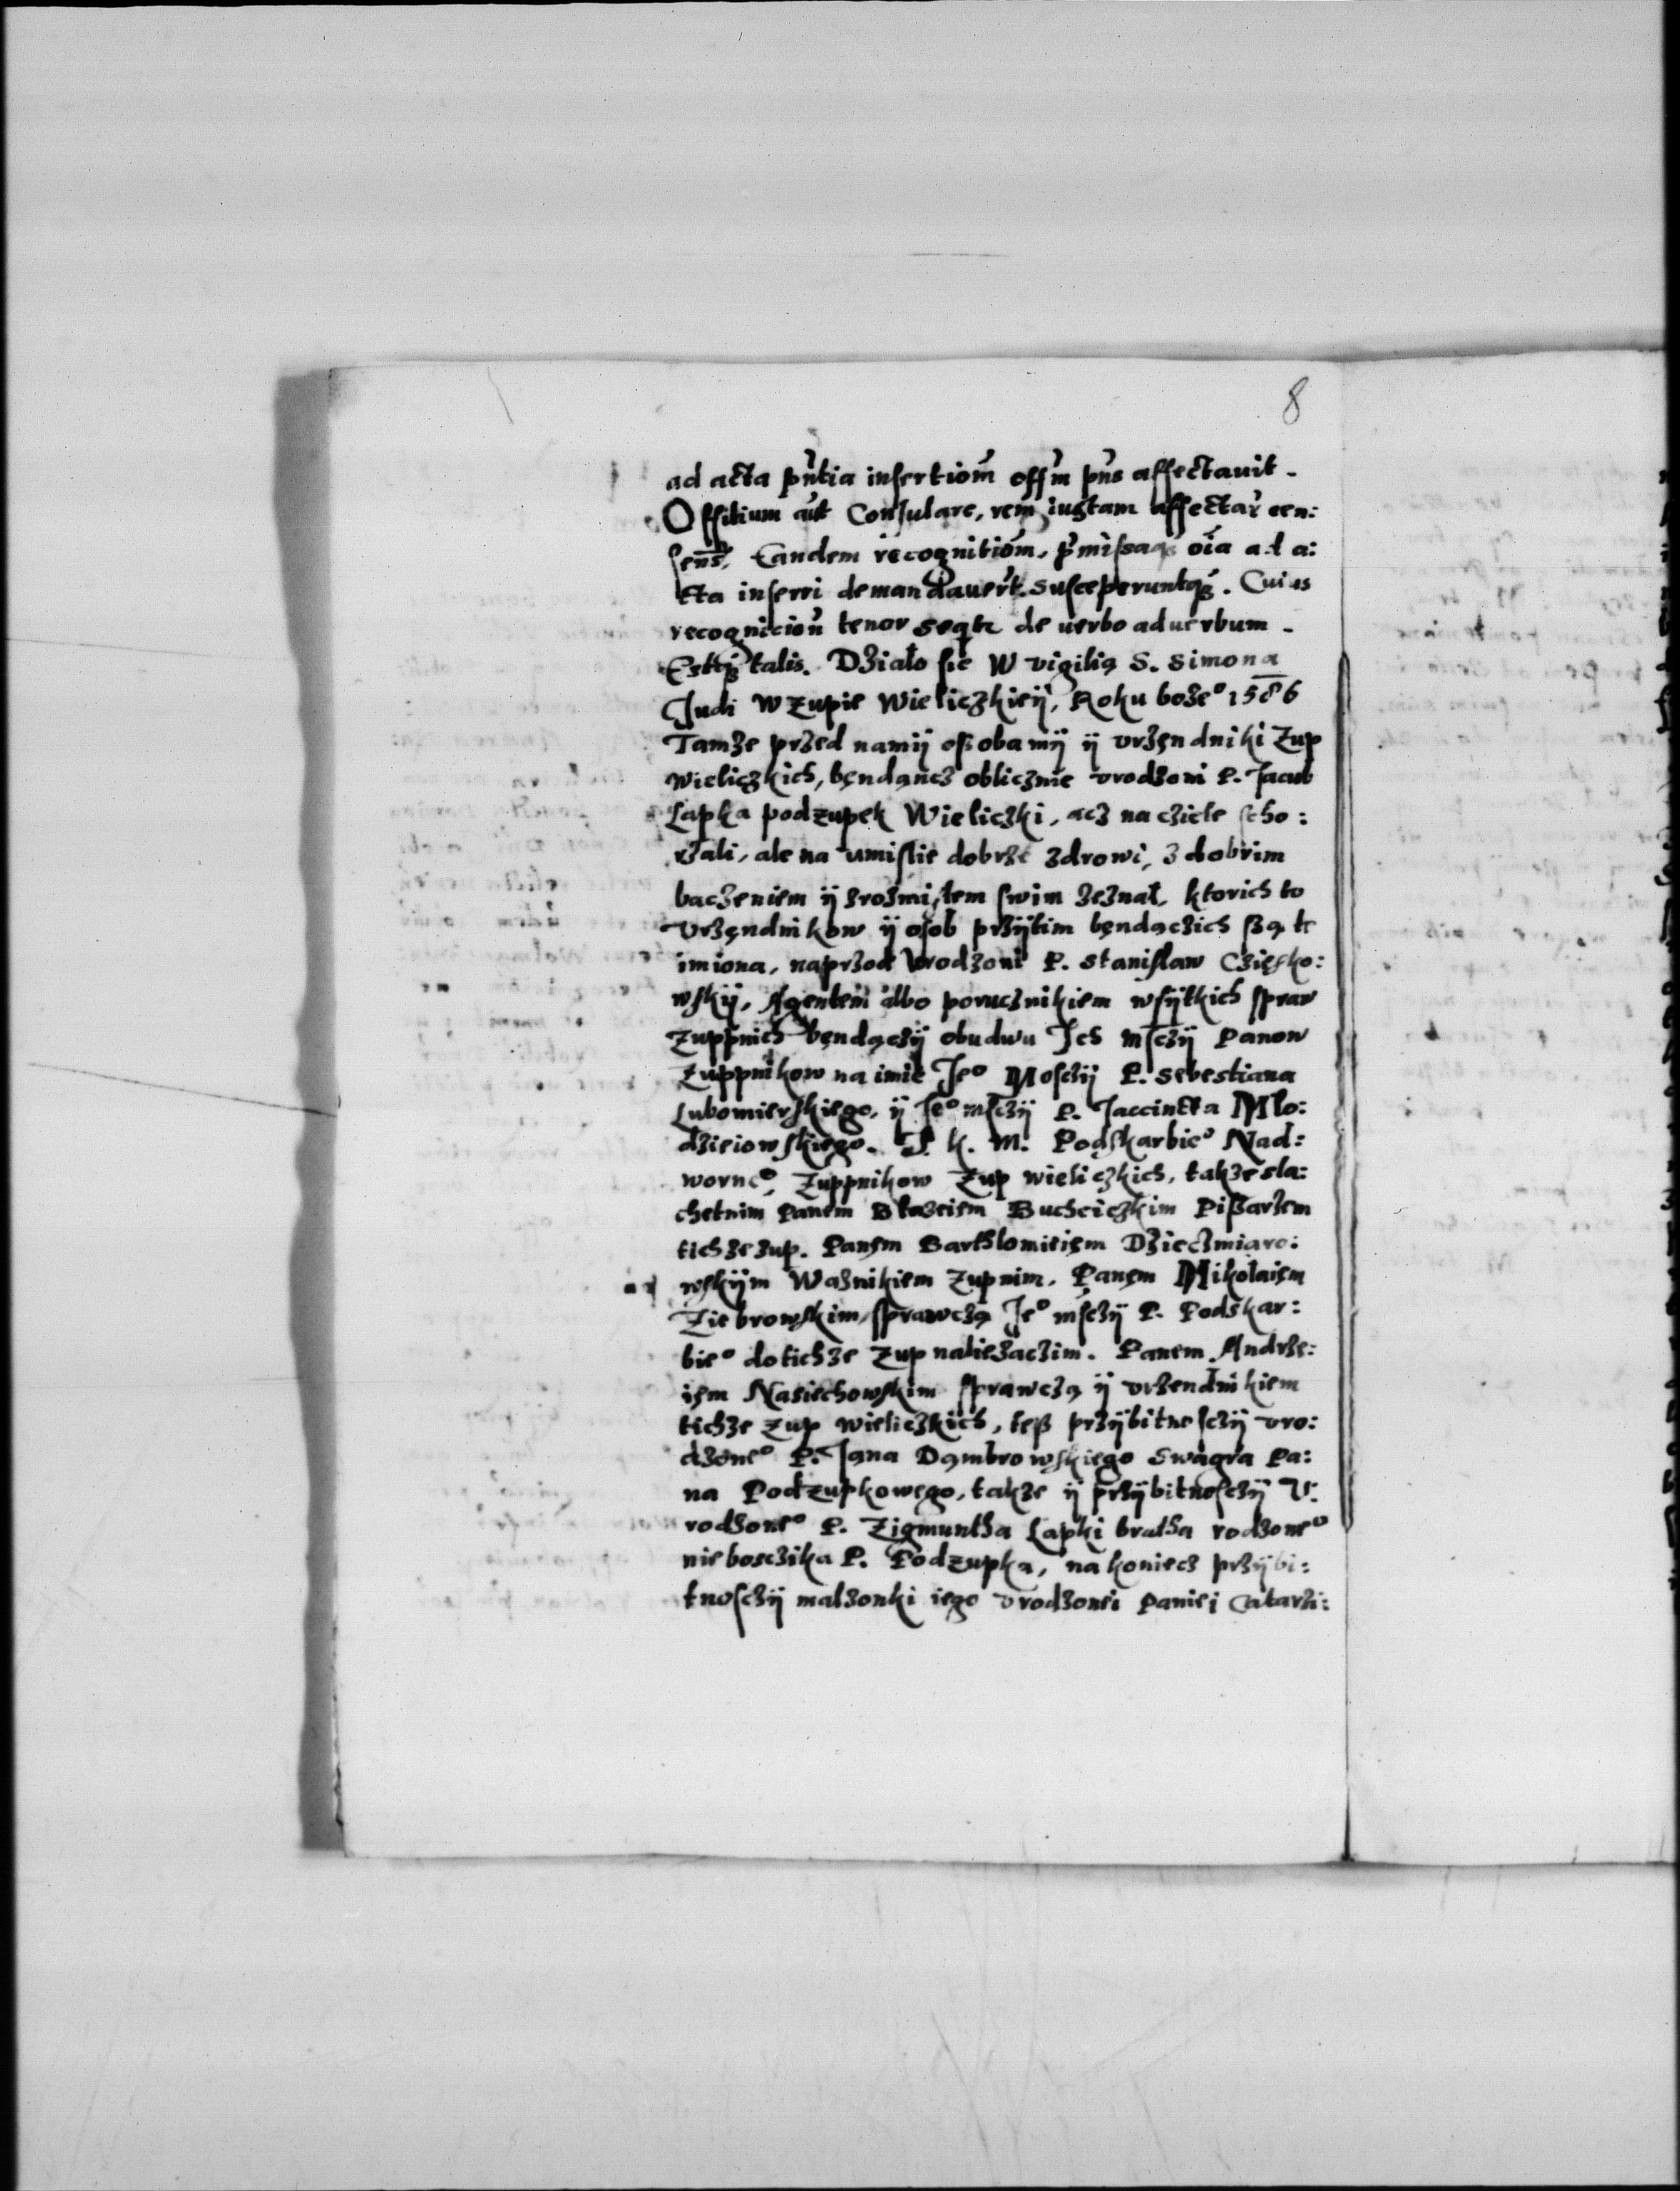 8
ad acta pñtia insertiom̃ offm̃ pñs affectauit.
Offitium aũt Consulare, rem iustam affectar̃ cen:
señs, Eandem recognitiom̃, p̃missaq3 oĩa ad a:
cta inserri demandauer̃t susceperuntq3. Cuius
recognicioñ tenor seqtr de uerbo aduerbum.
Estq3 talis. Działo sie W vigilią S. Simona
Judi W Zupie Wieliczkieÿ, Roku boze° 1586
Tamze przed namÿ osobamÿ ÿ vrzędniki Zup
Wieliczkich, będącz oblicznie vrodzoni P. Jacub
Łapka podzupek Wieliczki, acz na cziele scho:
rzali, ale na umislie dobrze zdrowi, z dobrim
baczeniem ÿ zrozmisłem swim zeznał, ktorich to
Vrzęndnikow ÿ osob przÿtim bendączich są te
imiona, naprzod Vrodzoni P. Stanislaw Czięsko:
wskÿ, Agentem albo porucznikiem wsÿtkich spraw
Zuppnich będączÿ obudwu Jch msczÿ Panow
Zuppnikow na imie Je° Mosczÿ P. Sebestiana
Lubomierskiego, ÿ Je° msczÿ P. Jaccincta Mlo:
dzieiowskiego. J. K. M. Podskarbie° Nad:
worne°, Zuppnikow Zup wieliczkich, takze sla:
chetnim Panem Błazeiem Bucheiczkim Pißarzem
tichze zup. Panęm Barthlomieięm Dzieczmiaro:
wskÿm Waznikiem Zupnim. Panęm Mikołaięm
Ziebrowskim, sprawczą Je° msczÿ P. Podskar:
bie° dotichze Zup naliezaczim. Panem Andrze:
ięm Nasiechowskim sprawczą ÿ vrzendnikiem
tichze Zup wieliczkich, teß przÿbitnesczÿ vro:
dzone° P. Jana Dąmbrowskiego Swagra Pa:
na Podzupkowego, takze ÿ przÿbitnosczÿ V:
rodzone° P. Zigmuntha Łapki bratha rodzone°
nieboscika P. Podzupka, na koniecz przÿbi:
tnosczÿ malzonki iego vrodzonei Paniei Catarzi: